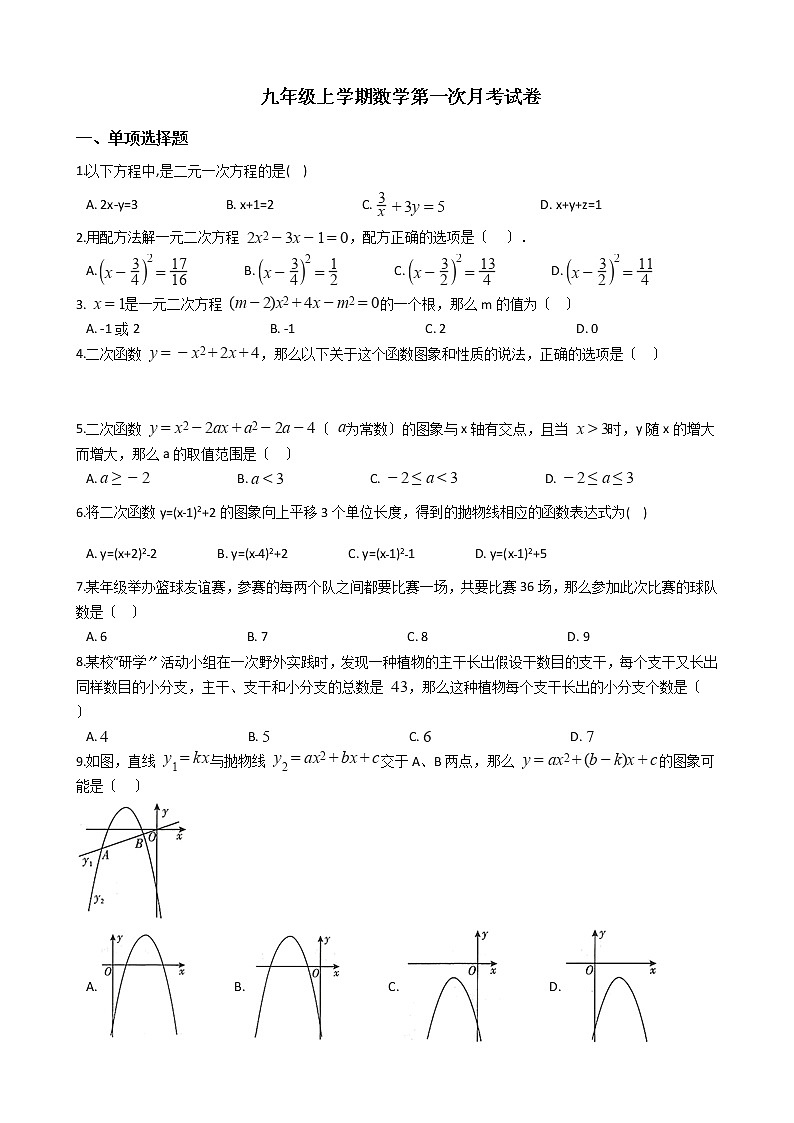 九年级上学期数学第一次月考试卷
一、单项选择题
1.以下方程中,是二元一次方程的是(   )
A. 2x-y=3    B. x+1=2    C. 3/x+3y=5    D. x+y+z=1
2.用配方法解一元二次方程 2x²−3x−1=0，配方正确的选项是〔   〕．
A. (x−3/4)²=17/16    B. (x−3/4)²=1/2    C. (x−3/2)²=13/4    D. (x−3/2)²=11/4
3. x=1是一元二次方程 (m−2)x²+4x−m²=0的一个根，那么 m 的值为〔   〕
A. -1 或 2    B. -1    C. 2    D. 0
4.二次函数 y=−x²+2x+4，那么以下关于这个函数图象和性质的说法，正确的选项是〔   〕
5.二次函数 y=x²−2ax+a²−2a−4〔 a为常数〕的图象与 x 轴有交点，且当 x>3时，y 随 x 的增大
而增大，那么 a 的取值范围是〔   〕
A. a≥−2    B. a<3    C. −2≤a<3    D. −2≤a≤3
6.将二次函数 y=(x-1)²+2 的图象向上平移 3 个单位长度，得到的抛物线相应的函数表达式为(   )
A. y=(x+2)²-2    B. y=(x-4)²+2    C. y=(x-1)²-1    D. y=(x-1)²+5
7.某年级举办篮球友谊赛，参赛的每两个队之间都要比赛一场，共要比赛 36 场，那么参加此次比赛的球队
数是〔   〕
A. 6    B. 7    C. 8    D. 9
8.某校“研学〞活动小组在一次野外实践时，发现一种植物的主干长出假设干数目的支干，每个支干又长出
同样数目的小分支，主干、支干和小分支的总数是 43，那么这种植物每个支干长出的小分支个数是〔
〕
A. 4    B. 5    C. 6    D. 7
9.如图，直线 y₁=kx与抛物线 y₂=ax²+bx+c交于 A、B 两点，那么 y=ax²+(b−k)x+c的图象可
能是〔   〕
y
B O x
y₁ A
y₂
y y y y
O x O x O x O x
A. B. C. D.